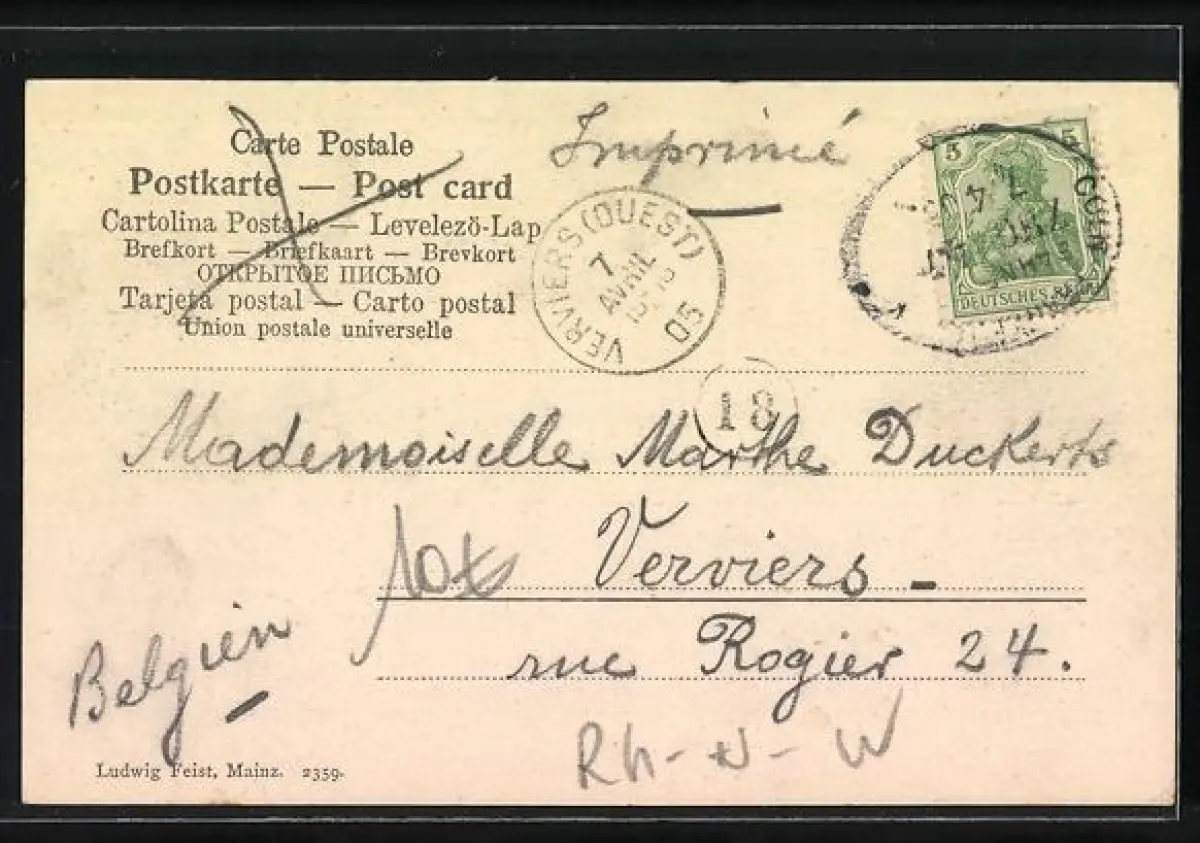 Carte Postale
Postkarte — Post card
Cartolina Postale — Levelező-Lap
Brefkort — Briefkaart — Brevkort
ОТКРЫТОЕ ПИСЬМО
Tarjeta postal — Carto postal
Union postale universelle
Imprimé
VERVIERS (OUEST)
7
AVRIL
05
5 5
DEUTSCHES REICH
CÖLN
18
Mademoiselle Marthe Duckerts
Verviers -
rue Rogier 24.
Belgien
Rh-N-W
Ludwig Feist, Mainz. 2359.